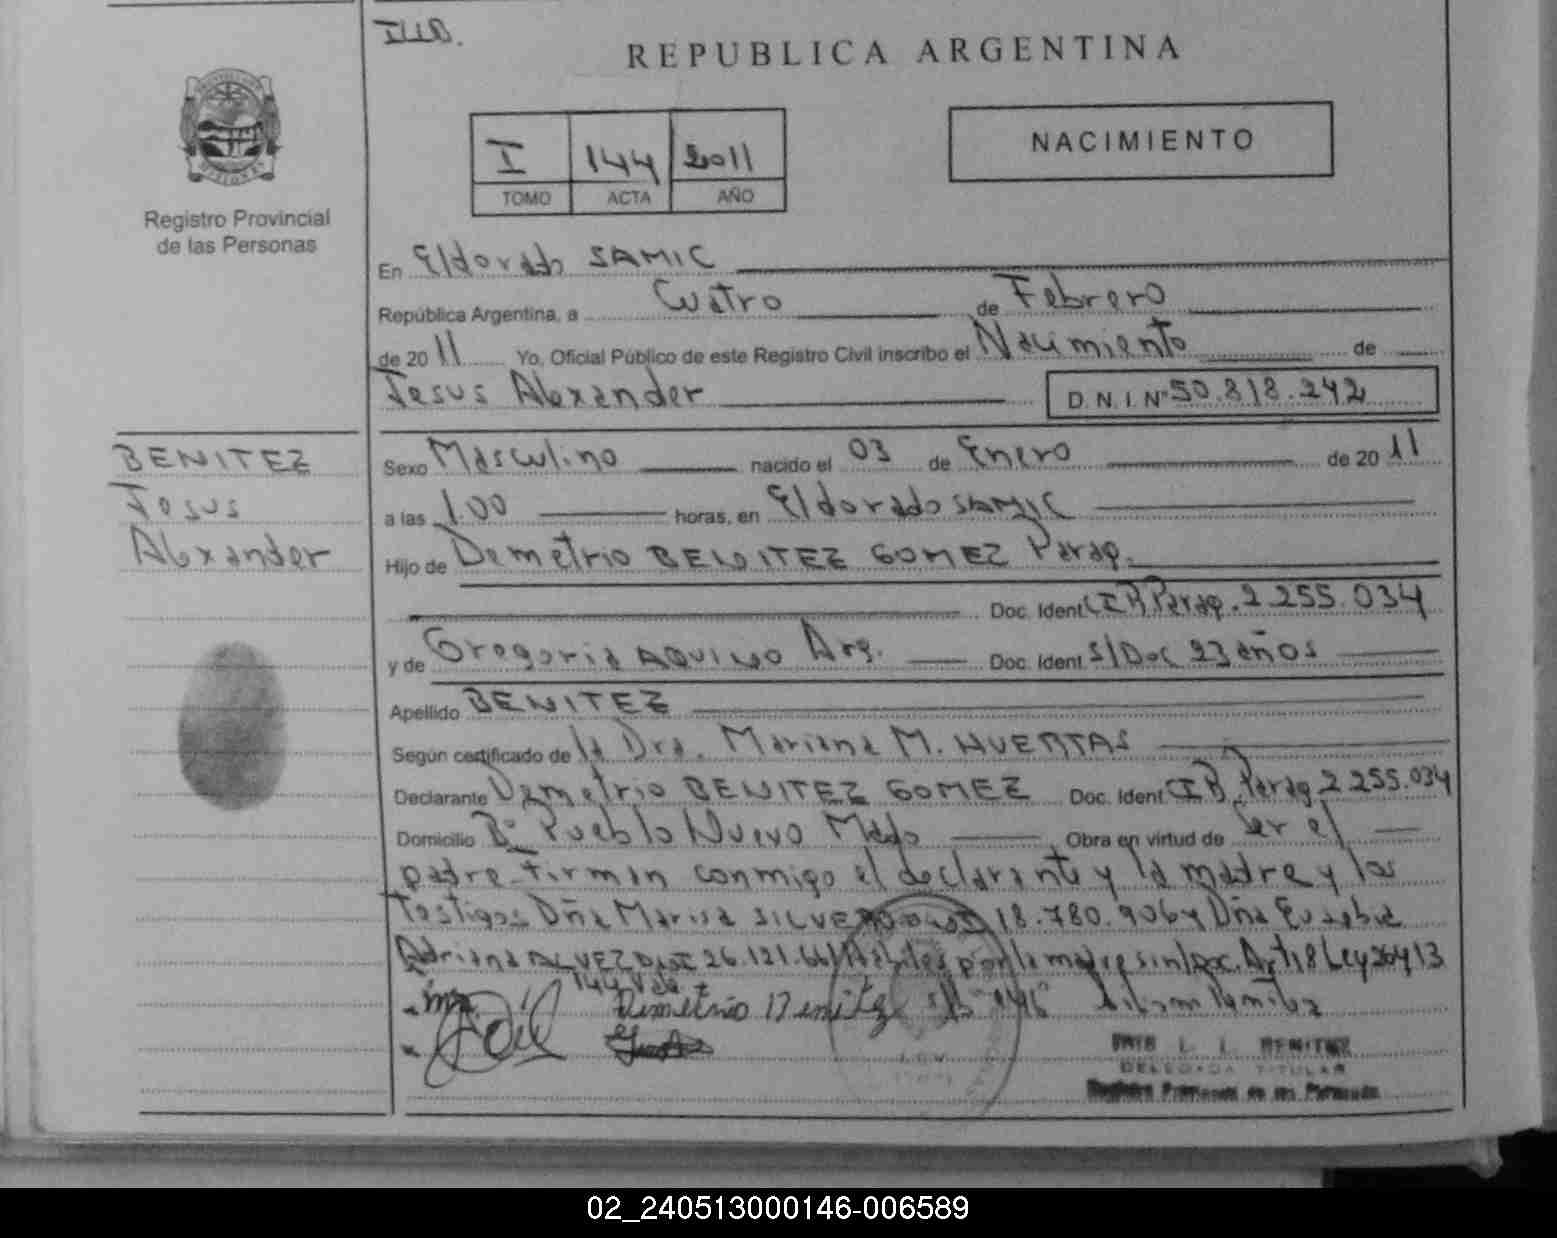 REPUBLICA ARGENTINA
I 144 2011
TOMO ACTA AÑO
NACIMIENTO
Registro Provincial
de las Personas
En Eldorado SAMIC
República Argentina, a Cuatro de Febrero
de 2011 Yo, Oficial Público de este Registro Civil inscribo el Nacimiento de
Jesus Alexander D.N.I. Nº 50.818.242
BENITEZ
Jesus
Alexander
Sexo Masculino nacido el 03 de Enero de 2011
a las 1.00 horas, en Eldorado SAMIC
Hijo de Demetrio BENITEZ GOMEZ Parag.
Doc. Ident. Parag. 2.255.034
y de Gregoria AQUINO Arg. Doc. Ident. S/Doc 23 años
Apellido BENITEZ
Según certificado de la Dra. Mariana M. HUERTAS
Declarante Demetrio BENITEZ GOMEZ Doc. Ident. Parag 2.255.034
Domicilio Bº Pueblo Nuevo Mado Obra en virtud de Ser el
padre. Firman conmigo el declarante y la madre y los
Testigos Dña Marisa 18.780.906 y Dña Eusebia
Adriana ALVEZ 26.121.661 por la madre sin Doc. Art 18 Ley 26413
Demetrio Benitez
L. I. BENITEZ
DELEGADA TITULAR
Registro Provincial de las Personas
02_240513000146-006589